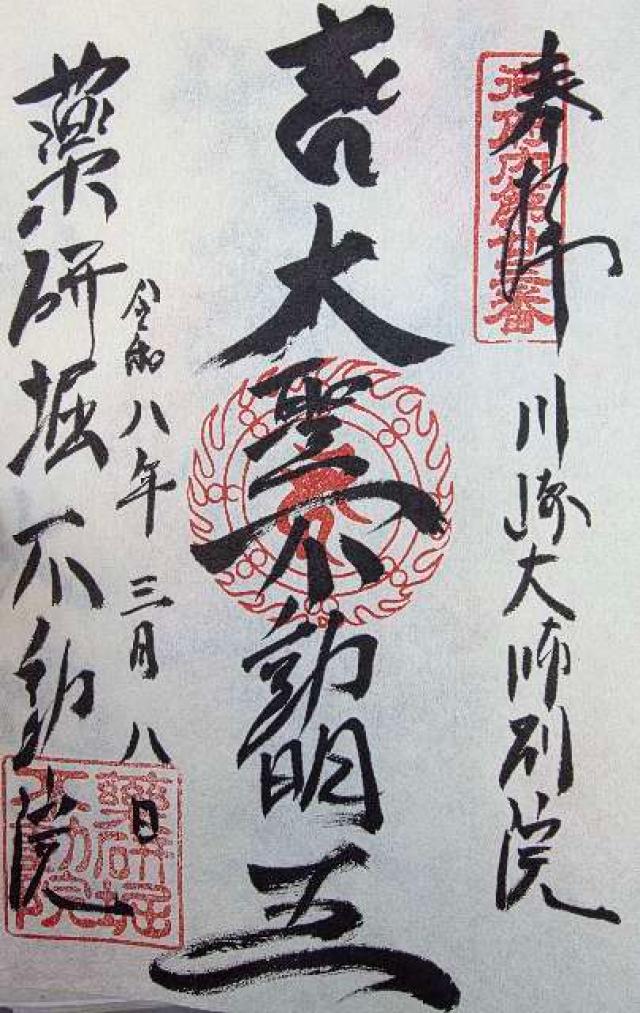 奉拝
御府内第廿三番
川崎大師別院
大聖不動明王
令和八年三月八日
薬研堀不動院
薬研堀
不動院